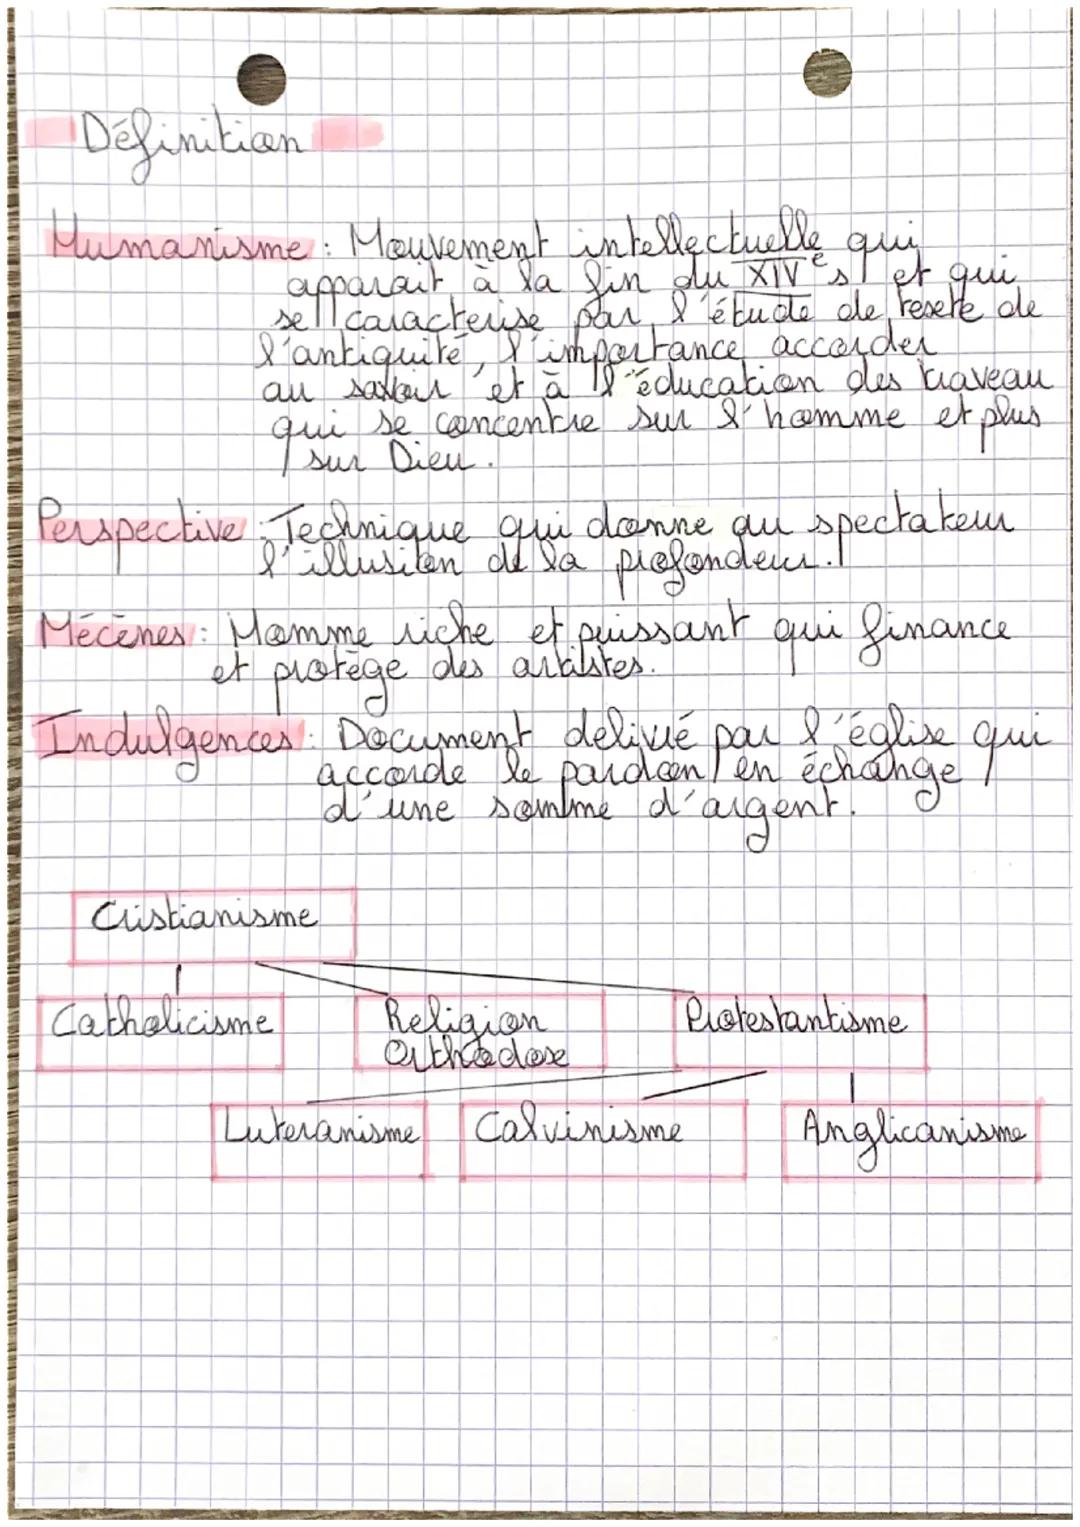 Définition
Humanisme : Mouvement intellectuelle qui
apparait à la fin du XIVe s et qui
se caracterise par l'étude de texete de
l'antiquité, l'importance accorder
au savoir et à l'éducation des traveau
qui se concentre sur l'homme et plus
sur Dieu.
Perspective : Technique qui donne au spectateur
l'illusiton de la profondeur.
Mécènes : Homme riche et puissant qui finance
et protège des artistes.
Indulgences : Document delivré par l'église qui
accorde le pardon en échange
d'une somme d'argent.
Cristianisme
Catholicisme Religion Protestantisme
Orthodoxe
Luteranisme Calvinisme Anglicanisme